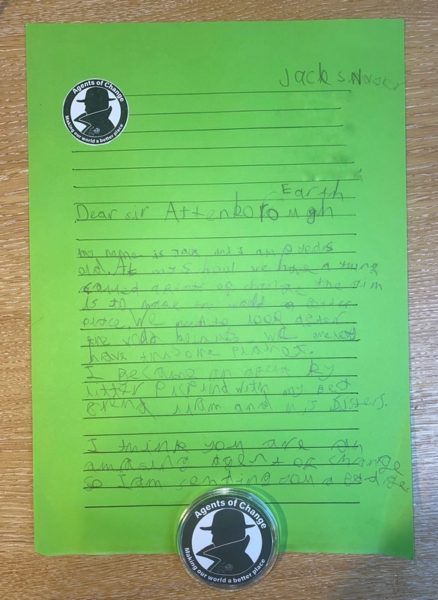 Jack
Agents of Change
Making our world a better place
Earth
Dear sir Attenborough
my name is Jack and I am years
old. At my we have a thing
called agents of change the aim
is to make the world a
place we need to look after
the we
have one planet.
I became an agent by
litter with my best
and my sisters.
I think you are an
agent of change
so I am you a
Agents of Change
Making our world a better place